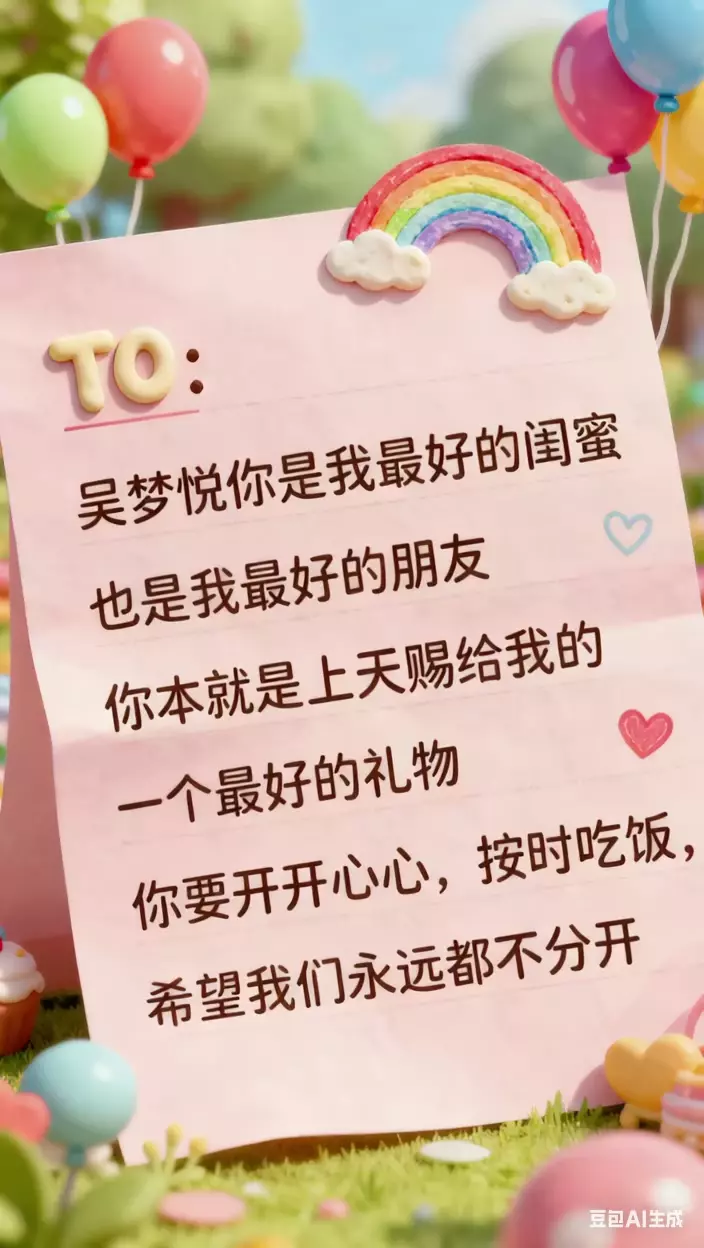 TO:
吴梦悦你是我最好的闺蜜
也是我最好的朋友
你本就是上天赐给我的
一个最好的礼物
你要开开心心，按时吃饭，
希望我们永远都不分开
豆包AI生成